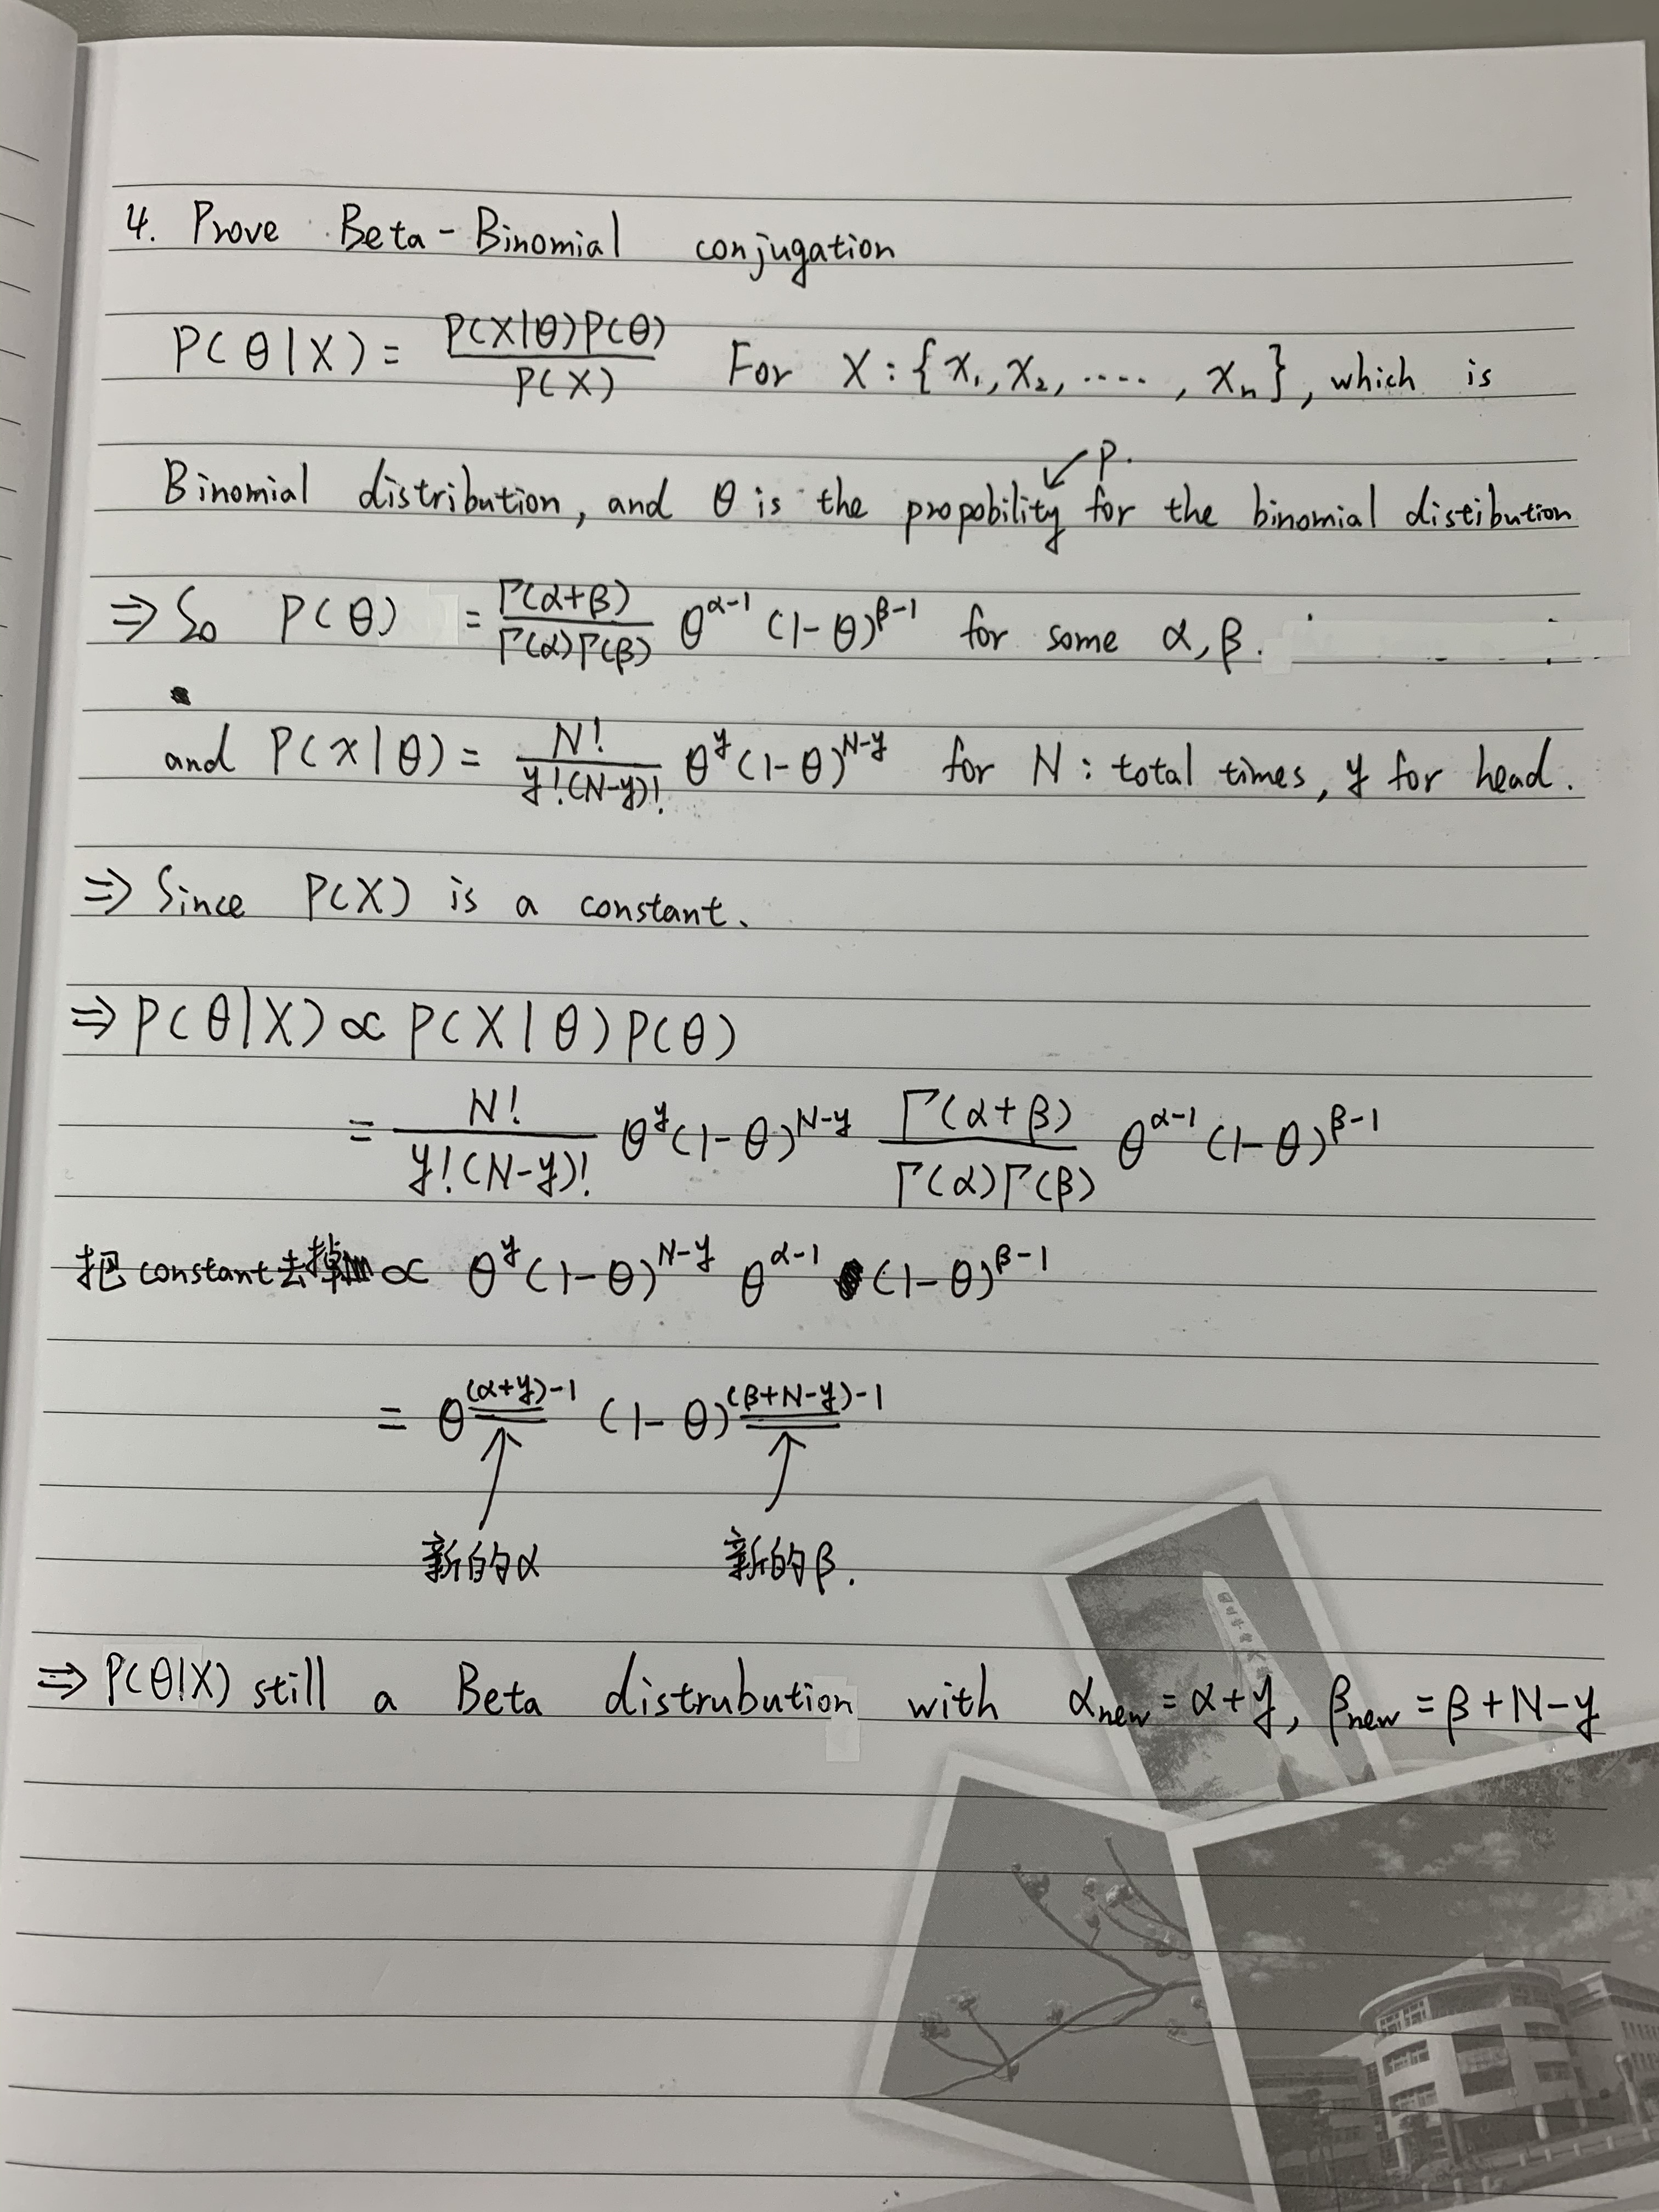 4. Prove Beta-Binomial conjugation
P(θ|X) = P(X|θ)P(θ) / P(X) For X : {x₁, x₂, ....., xₙ}, which is
p.
Binomial distribution, and θ is the propobility for the binomial distibution
⇒ So P(θ) = Γ(α+β) / Γ(α)Γ(β) θ^(α-1) (1-θ)^(β-1) for some α, β.
and P(x|θ) = N! / y!(N-y)! θ^y (1-θ)^(N-y) for N : total times, y for head.
⇒ Since P(X) is a constant.
⇒ P(θ|X) ∝ P(X|θ) P(θ)
= N! / y!(N-y)! θ^y (1-θ)^(N-y) Γ(α+β) / Γ(α)Γ(β) θ^(α-1) (1-θ)^(β-1)
把 constant 去掉 ∝ θ^y (1-θ)^(N-y) θ^(α-1) (1-θ)^(β-1)
= θ^((α+y)-1) (1-θ)^((β+N-y)-1)
新的α 新的β.
⇒ P(θ|X) still a Beta distrubution with α_new = α+y, β_new = β+N-y